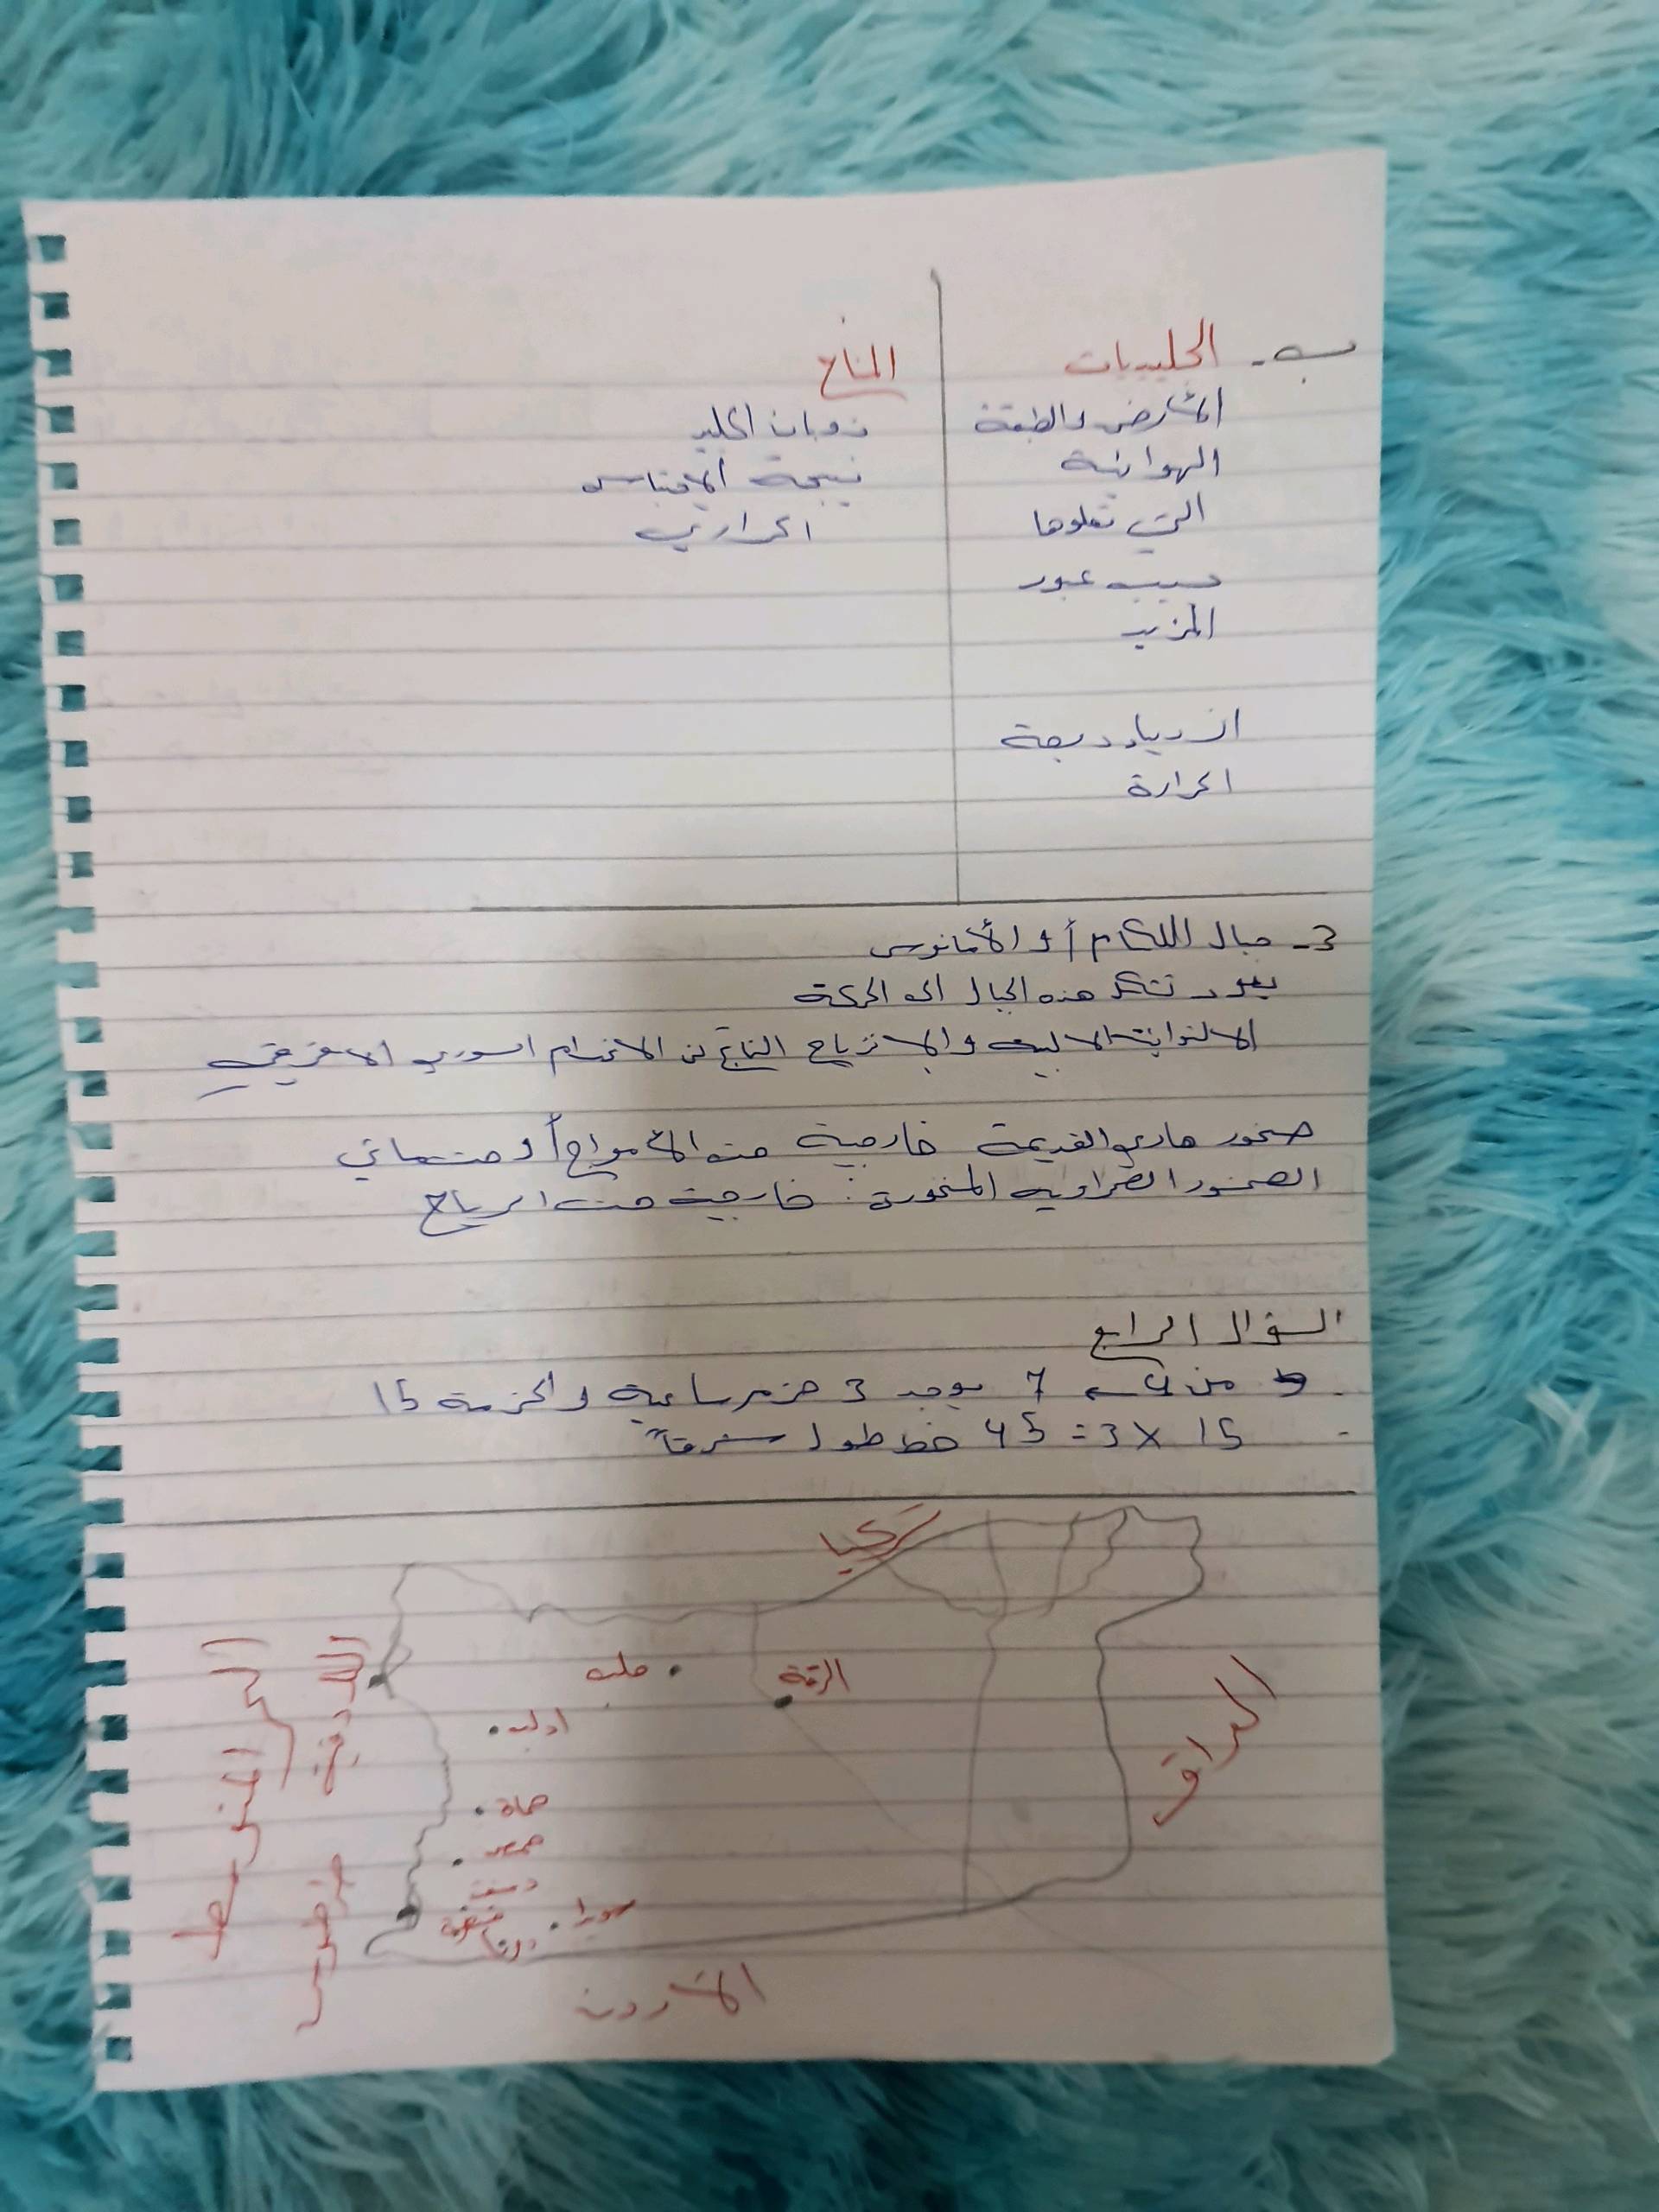 ب- الجليديات
الأرض والطبقة
الهوائية
التي تعلوها
حسب عبور
المزيد
ازدياد درجة
الحرارة
المناخ
ذوبان الجليد
نتيجة الاحتباس
الحراري
3- جبال اللكام أو الأمانوس
يعود تشكل هذه الجبال الى الحركة
الالتوائية الالبية والانزياح الناتج عن الانهدام السوري الافريقي
صخور هاري القديمة خارجية حت الأمواج أو حت مائي
الصخور الصحراوية المنخورة: خارجية حت الرياح
السؤال الرابع
من 7 يوجد 3 حزم ساعية والحزمة 15
15 × 3 = 45 خط طول شرقاً
تركيا
العراق
الرقة
حلب
ادلب
حماة
حمص
دمشق
قنيطرة
سويدا
درعا
الأردن
اللاذقية
طرطوس
البحر المتوسط